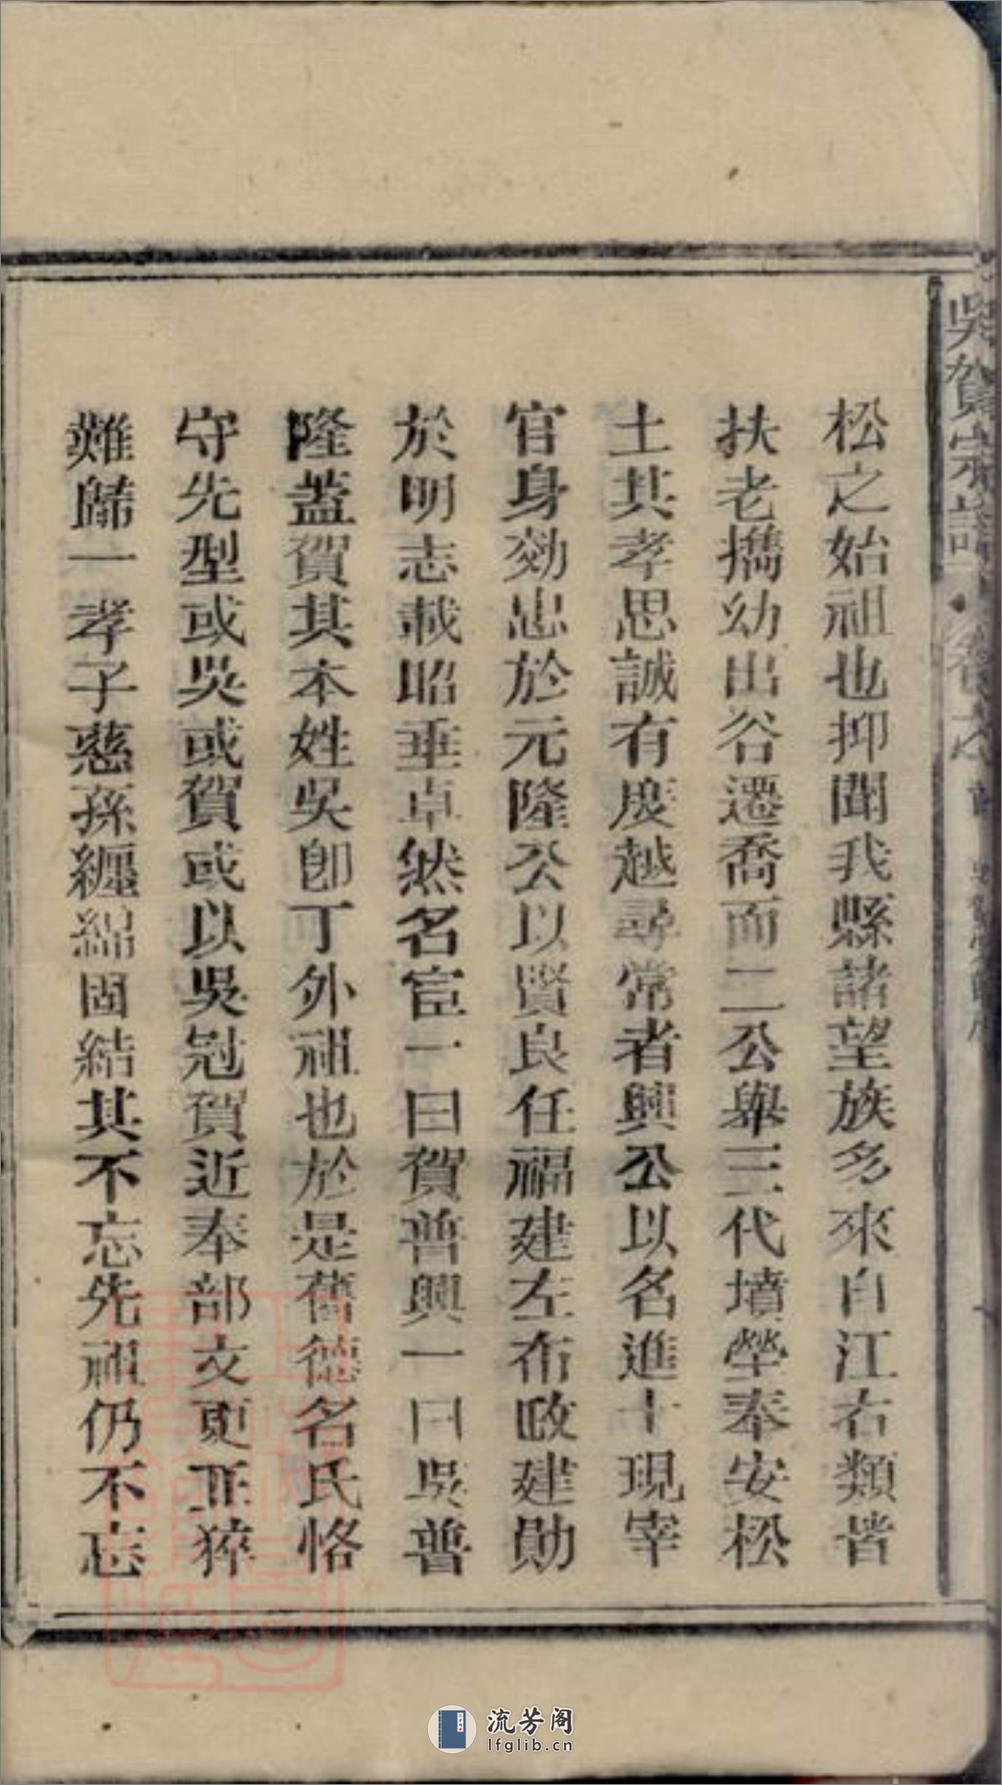 吳賀宗譜
松之始祖也抑聞我縣諸望族多來自江右類皆
扶老攜幼出谷遷喬而二公舉三代墳塋奉安松
土其孝思誠有度越尋常者興公以名進士現宰
官身効忠於元隆公以賢良任福建左布政建勛
於明志載昭垂卓然名宦一曰賀普興一曰吳普
隆蓋賀其本姓吳卽丁外祖也於是舊德名氏恪
守先型或吳或賀或以吳冠賀近奉部文更正猝
難歸一孝子慈孫纏綿固結其不忘先祖仍不忘
流芳阁
lfglib.cn